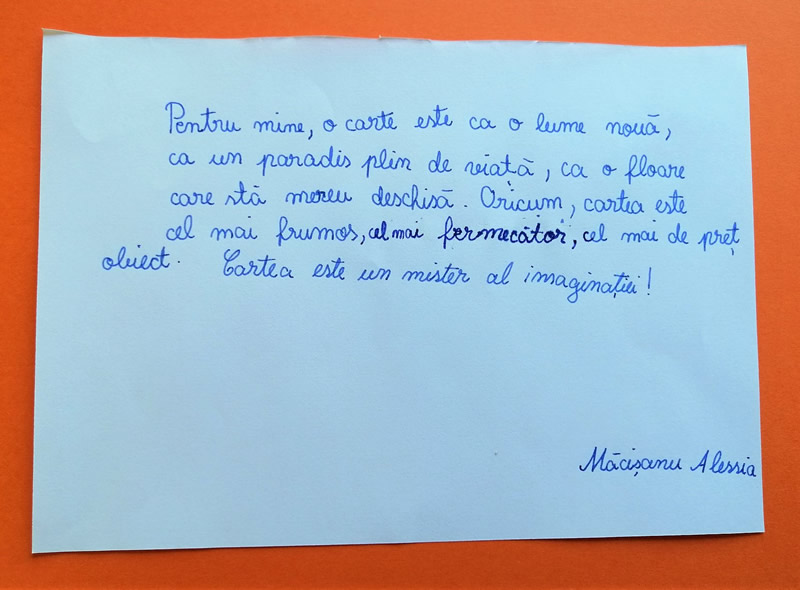 Pentru mine, o carte este ca o lume nouă,
ca un paradis plin de viață, ca o floare
care stă mereu deschisă. Oricum, cartea este
cel mai frumos, cel mai fermecător, cel mai de preț
obiect. Cartea este un mister al imaginației!
Măcișanu Alessia